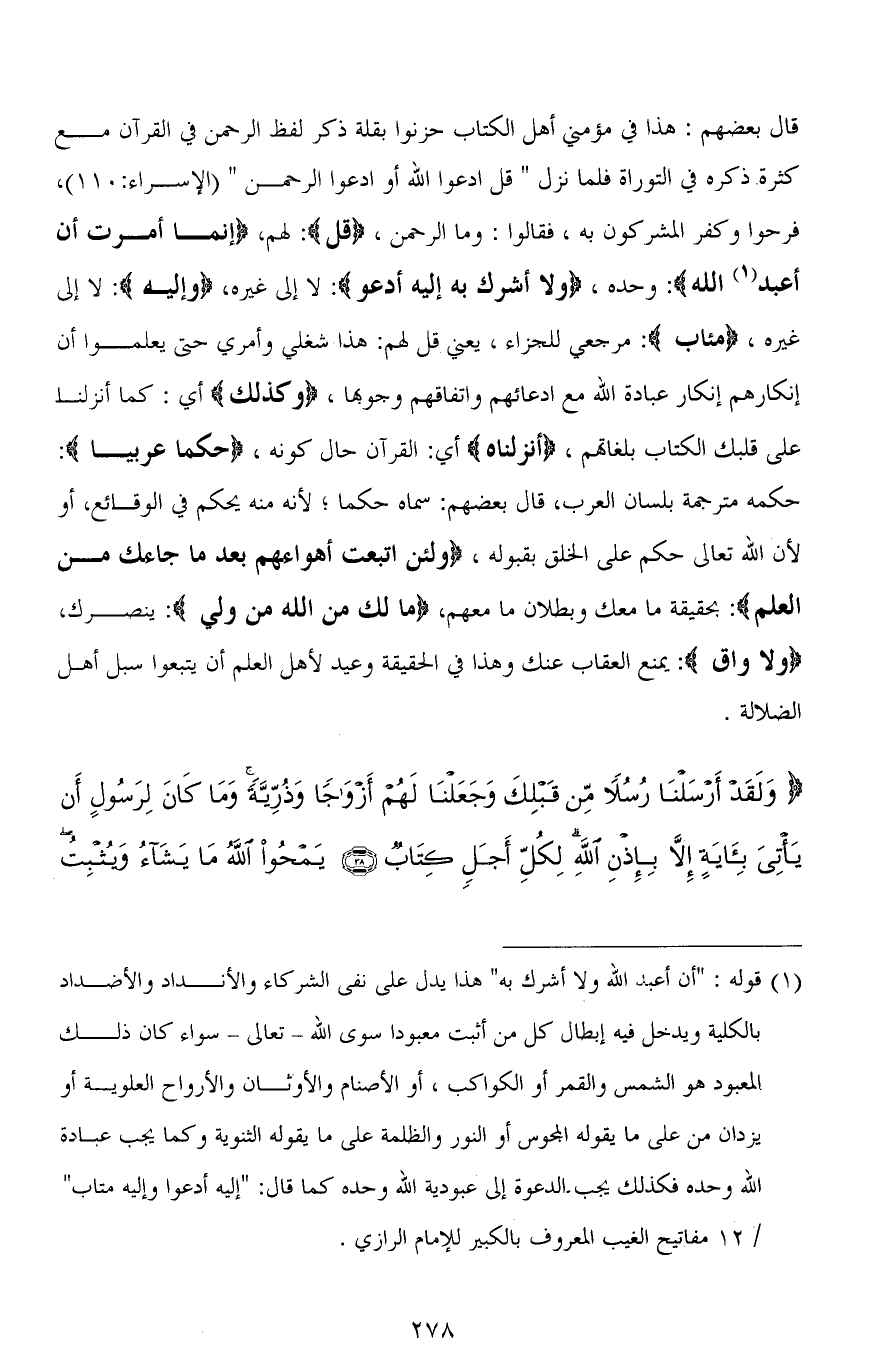 قال بعضهم : هذا في مؤمني أهل الكتاب حزنوا بقلة ذكر لفظ الرحمن في القرآن مع
كثرة ذكره في التوراة فلما نزل " قل ادعوا الله أو ادعوا الرحمن " (الإسراء:١١٠)،
فرحوا وكفر المشركون به ، فقالوا : وما الرحمن ، ﴿قل﴾: لهم، ﴿إنما أمرت أن
أعبد(١) الله﴾: وحده ، ﴿ولا أشرك به إليه أدعو﴾: لا إلى غيره، ﴿وإليه ﴾: لا إلى
غيره ، ﴿مئاب ﴾: مرجعي للجزاء ، يعني قل لهم: هذا شغلي وأمري حتى يعلموا أن
إنكارهم إنكار عبادة الله مع ادعائهم واتفاقهم وجوبها ، ﴿وكذلك﴾ أي : كما أنزلنا
على قلبك الكتاب بلغاتهم ، ﴿أنزلناه﴾ أي: القرآن حال كونه ، ﴿حكما عربيا ﴾:
حكمه مترجمة بلسان العرب، قال بعضهم: سماه حكما ؛ لأنه منه يحكم في الوقائع، أو
لأن الله تعالى حكم على الخلق بقبوله ، ﴿ولئن اتبعت أهواءهم بعد ما جاءك من
العلم﴾: بحقيقة ما معك وبطلان ما معهم، ﴿ما لك من الله من ولي ﴾: ينصرك،
﴿ولا واق ﴾: يمنع العقاب عنك وهذا في الحقيقة وعيد لأهل العلم أن يتبعوا سبل أهل
الضلالة .
﴿ وَلَقَدْ أَرْسَلْنَا رُسُلًا مِّن قَبْلِكَ وَجَعَلْنَا لَهُمْ أَزْوَٰجًا وَذُرِّيَّةً ۚ وَمَا كَانَ لِرَسُولٍ أَن
يَأْتِىَ بِـَٔايَةٍ إِلَّا بِإِذْنِ ٱللَّهِ ۗ لِكُلِّ أَجَلٍ كِتَابٌ ﴿٣٨﴾ يَمْحُوا۟ ٱللَّهُ مَا يَشَآءُ وَيُثْبِتُ ۖ
(١) قوله : "أن أعبد الله ولا أشرك به" هذا يدل على نفى الشركاء والأنداد والأضداد
بالكلية ويدخل فيه إبطال كل من أثبت معبودا سوى الله – تعالى – سواء كان ذلك
المعبود هو الشمس والقمر أو الكواكب ، أو الأصنام والأوثان والأرواح العلوية أو
يزدان من على ما يقوله المجوس أو النور والظلمة على ما يقوله الثنوية وكما يجب عبادة
الله وحده فكذلك يجب الدعوة إلى عبودية الله وحده كما قال: "إليه أدعوا وإليه متاب"
/ ١٢ مفاتيح الغيب المعروف بالكبير للإمام الرازي .
٢٧٨